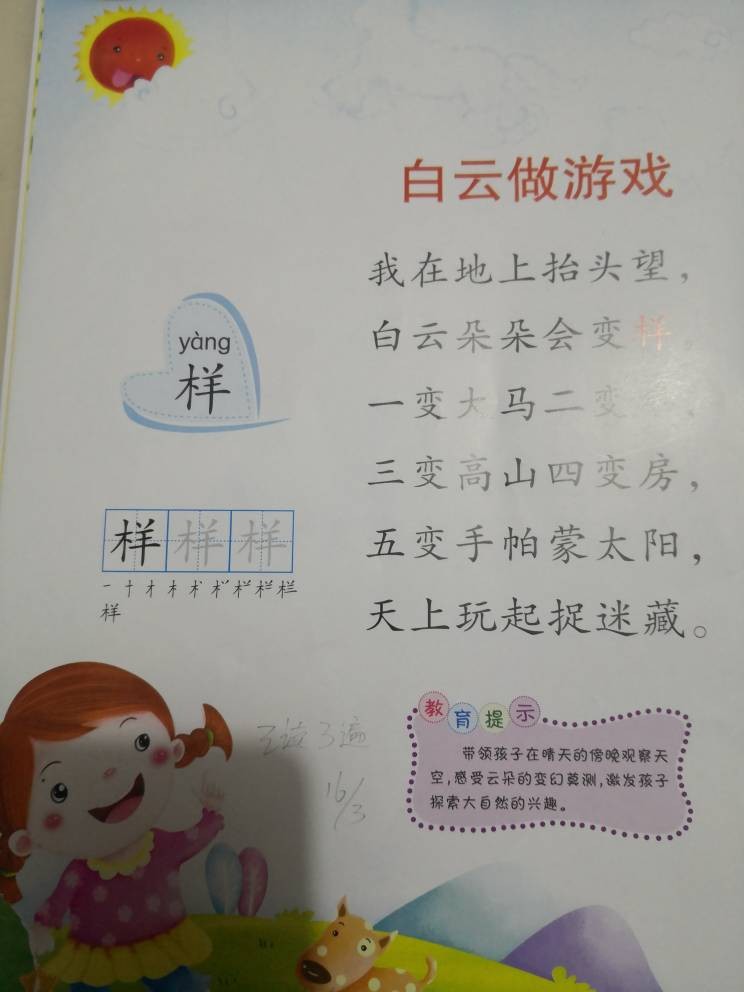 白云做游戏
我在地上抬头望，
白云朵朵会变样。
一变大马二变
三变高山四变房，
五变手帕蒙太阳，
天上玩起捉迷藏。
yàng
样
样 样 样
样
教育提示
带领孩子在晴天的傍晚观察天
空，感受云朵的变幻莫测，激发孩子
探索大自然的兴趣。
3遍
16/3